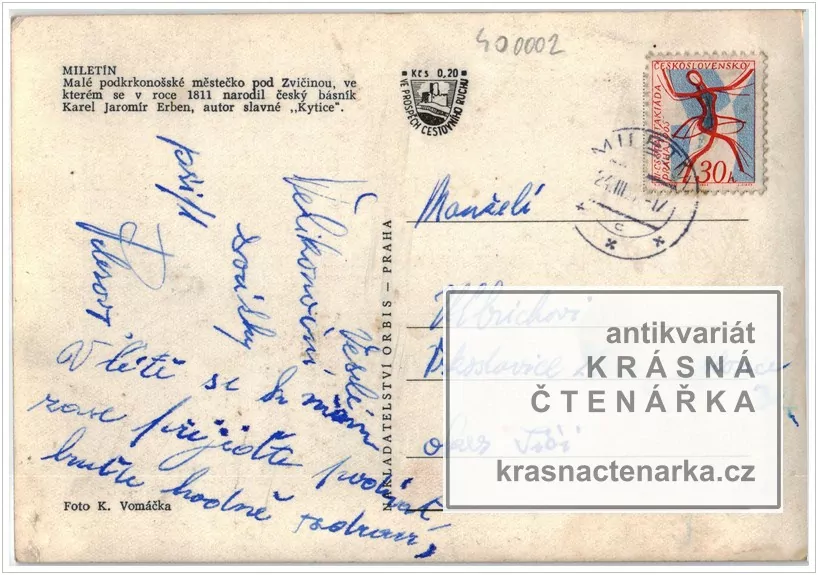 400002
MILETÍN
Malé podkrkonošské městečko pod Zvičinou, ve
kterém se v roce 1811 narodil český básník
Karel Jaromír Erben, autor slavné ,,Kytice".
Kčs 0,20
VE PROSPĚCH CESTOVNÍHO RUCHU
ČESKOSLOVENSKO
PRAHA 1965
30
MILETÍN
24.III.
c
Veselé
Velikonoční
svátky
V létě se k nám
zase přijeďte podívat
buďte hodně zdraví,
NAKLADATELSTVÍ ORBIS — PRAHA
Manželé
antikvariát
KRÁSNÁ
ČTENÁŘKA
krasnactenarka.cz
Foto K. Vomáčka